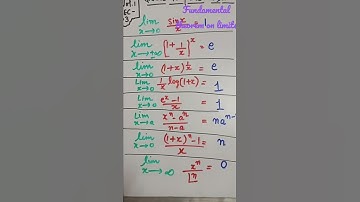 Fundamental
theorem on limits
lim x→0 sinx/x = 1
lim x→+∞ [1+1/x]^x = e
lim x→0 (1+x)^1/x = e
lim x→0 1/x log(1+x) = 1
lim x→0 e^x-1/x = 1
lim x→a x^n-a^n/n-a = na^n-
lim x→0 (1+x)^n-1/x = n
lim x→∞ x^n/⌊n = 0